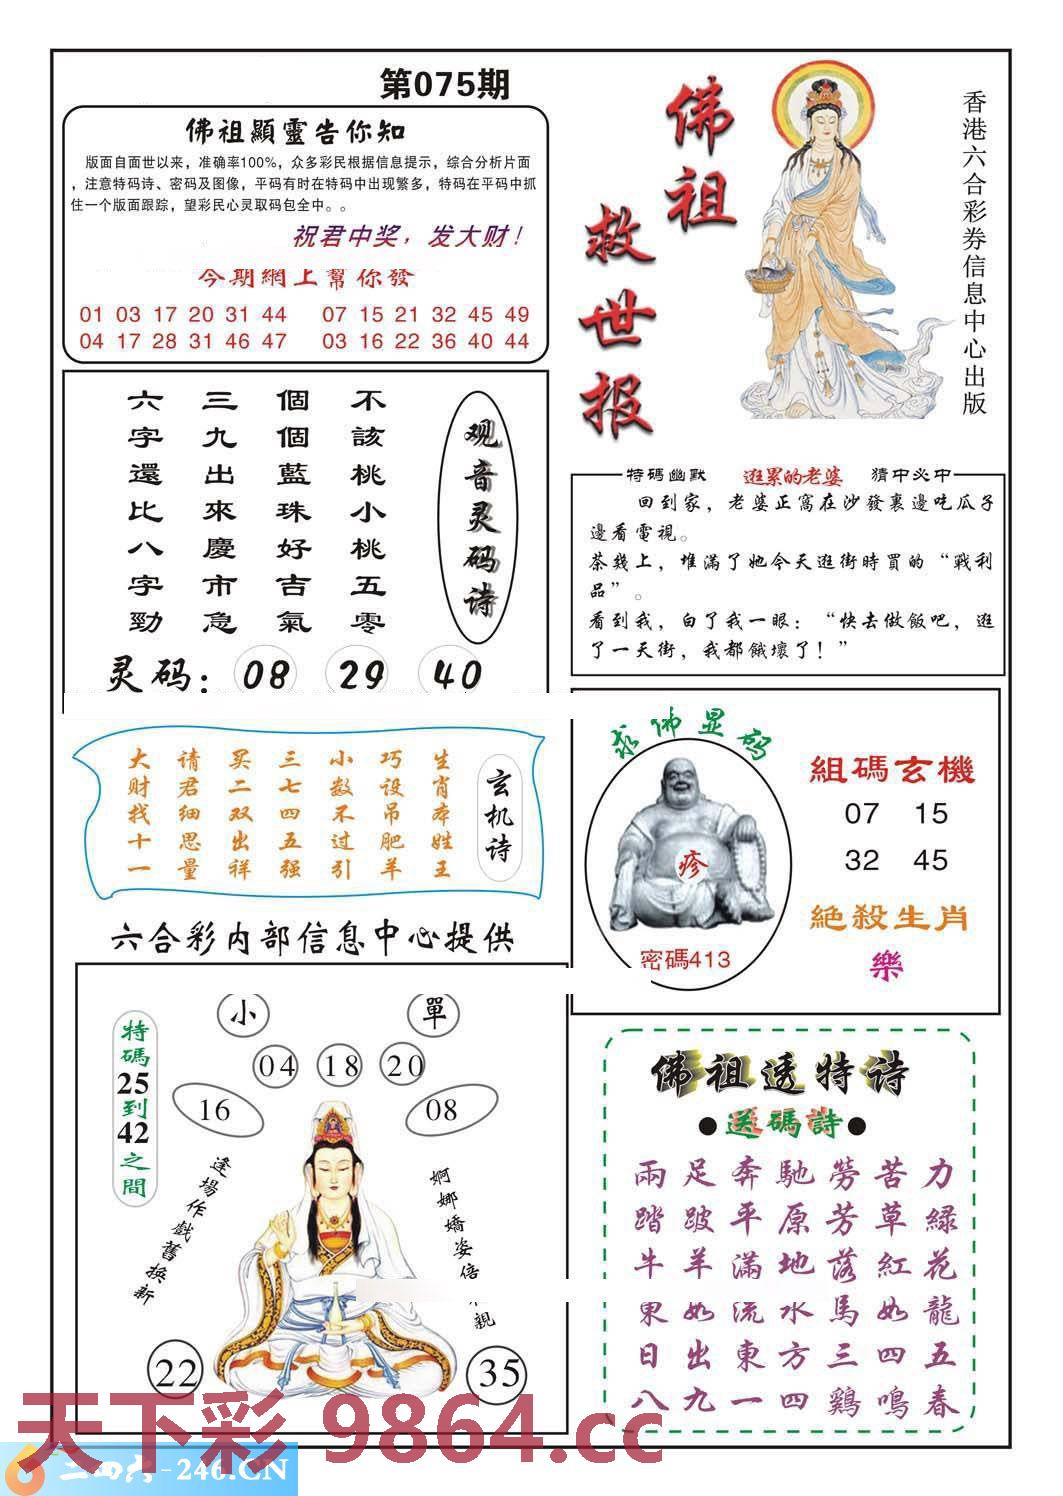 第075期
佛祖顯靈告你知
版面自面世以来，准确率100%，众多彩民根据信息提示，综合分析片面
，注意特码诗、密码及图像，平码有时在特码中出现繁多，特码在平码中抓
住一个版面跟踪，望彩民心灵取码包全中。。
祝君中奖，发大财！
今期網上幫你發
01 03 17 20 31 44 07 15 21 32 45 49
04 17 28 31 46 47 03 16 22 36 40 44
佛祖
救世报
香港六合彩券信息中心出版
观音灵码诗
不該桃小桃五零
個個藍珠好吉氣
三九出來慶市急
六字還比八字勁
灵码：08 29 40
特碼幽默 逛累的老婆 猜中必中
回到家，老婆正窩在沙發裏邊吃瓜子
邊看電視。
茶幾上，堆滿了她今天逛街時買的“戰利
品”。
看到我，白了我一眼：“快去做飯吧，逛
了一天街，我都餓壞了！”
玄机诗
生肖本姓王
巧设吊肥羊
小数不过引
三七四五强
买二双出祥
请君细思量
大财找十一
求佛显码
疹
密碼413
組碼玄機
07 15
32 45
絕殺生肖
樂
六合彩内部信息中心提供
小 單
04 18 20
16 08
特碼25到42之間
逢場作戲舊換新
婀娜嬌姿倍
親
22 35
佛祖透特诗
●送碼詩●
兩足奔馳勞苦力
踏跛平原芳草緑
牛羊滿地落紅花
東如流水馬如龍
日出東方三四五
八九一四鷄鳴春
天下彩 9864.cc
二四六-246.CN